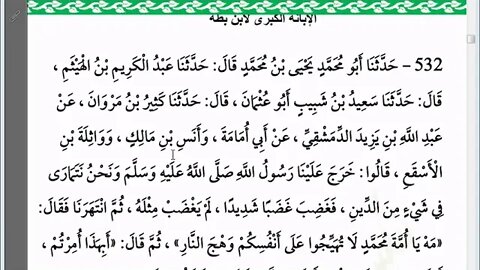 الإبانة الكبرى لابن بطة
532 - حَدَّثَنَا أَبُو مُحَمَّدٍ يَحْيَى بْنُ مُحَمَّدٍ قَالَ: حَدَّثَنَا عَبْدُ الْكَرِيمِ بْنُ الْهَيْثَمِ ,
قَالَ: حَدَّثَنَا سَعِيدُ بْنُ شَبِيبٍ أَبُو عُثْمَانَ , قَالَ: حَدَّثَنَا كَثِيرُ بْنُ مَرْوَانَ , عَنْ
عَبْدِ اللَّهِ بْنِ يَزِيدَ الدِّمَشْقِيِّ , عَنْ أَبِي أُمَامَةَ , وَأَنَسِ بْنِ مَالِكٍ , وَوَاثِلَةَ بْنِ
الْأَسْقَعِ , قَالُوا: خَرَجَ عَلَيْنَا رَسُولُ اللَّهِ صَلَّى اللَّهُ عَلَيْهِ وَسَلَّمَ وَنَحْنُ نَتَمَارَى
فِي شَيْءٍ مِنَ الدِّينِ , فَغَضِبَ غَضَبًا شَدِيدًا , لَمْ يَغْضَبْ مِثْلَهُ , ثُمَّ انْتَهَرَنَا فَقَالَ:
«مَهْ يَا أُمَّةَ مُحَمَّدٍ لَا تُهَيِّجُوا عَلَى أَنْفُسِكُمْ وَهَجَ النَّارِ» , ثُمَّ قَالَ: «أَبِهَذَا أُمِرْتُمْ ,